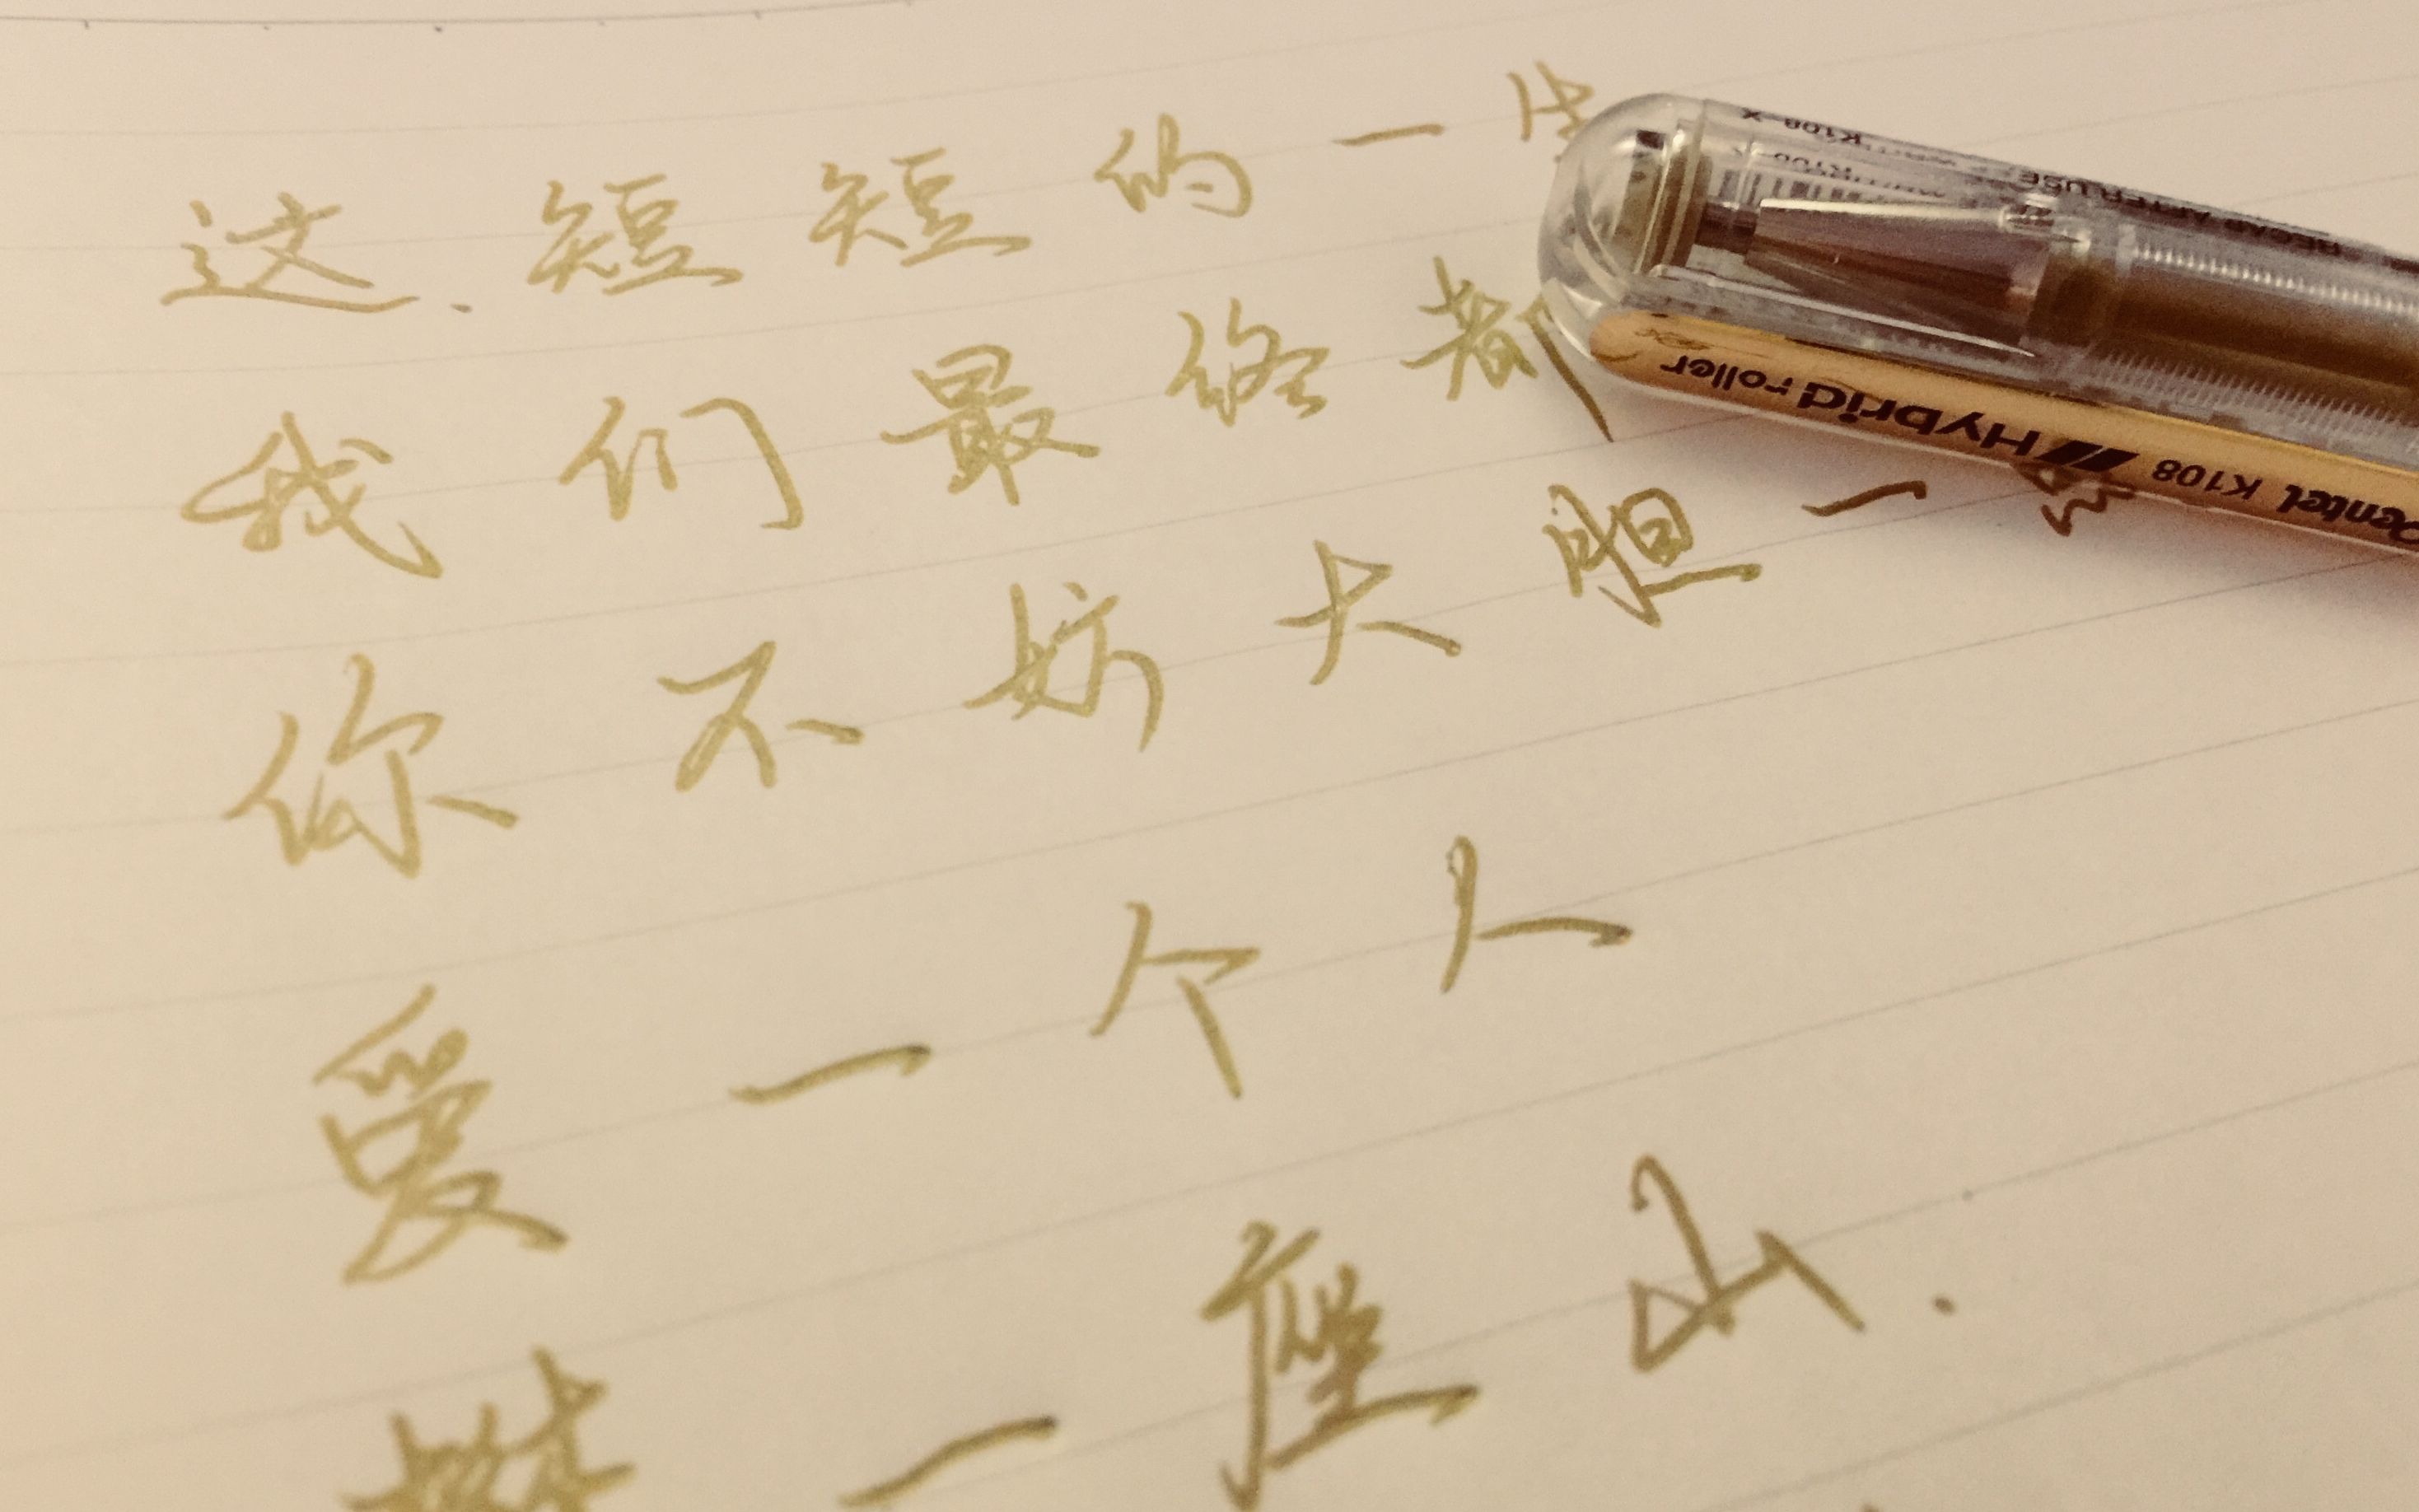 这、短短的一生
我们最终都
你不妨大胆一些
爱一个人
攀一座山.
Pentel K108 Hybrid roller
RECAP AFTER USE
K108-X